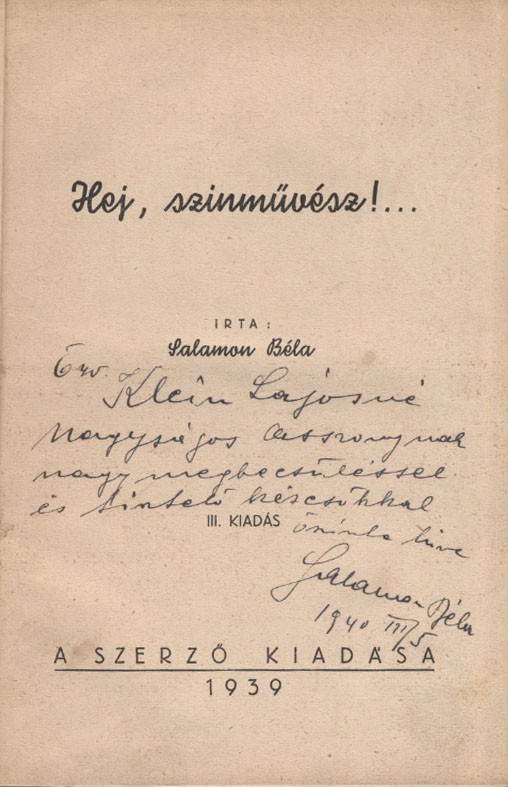 Hej, szinművész!...
IRTA:
Salamon Béla
Özv. Klein Lajosné
Nagyságos Asszonynak
nagy megbecsüléssel
és tisztelő kézcsókkal
III. KIADÁS
őszinte híve
Salamon Béla
1940 III/5
A SZERZŐ KIADÁSA
1939